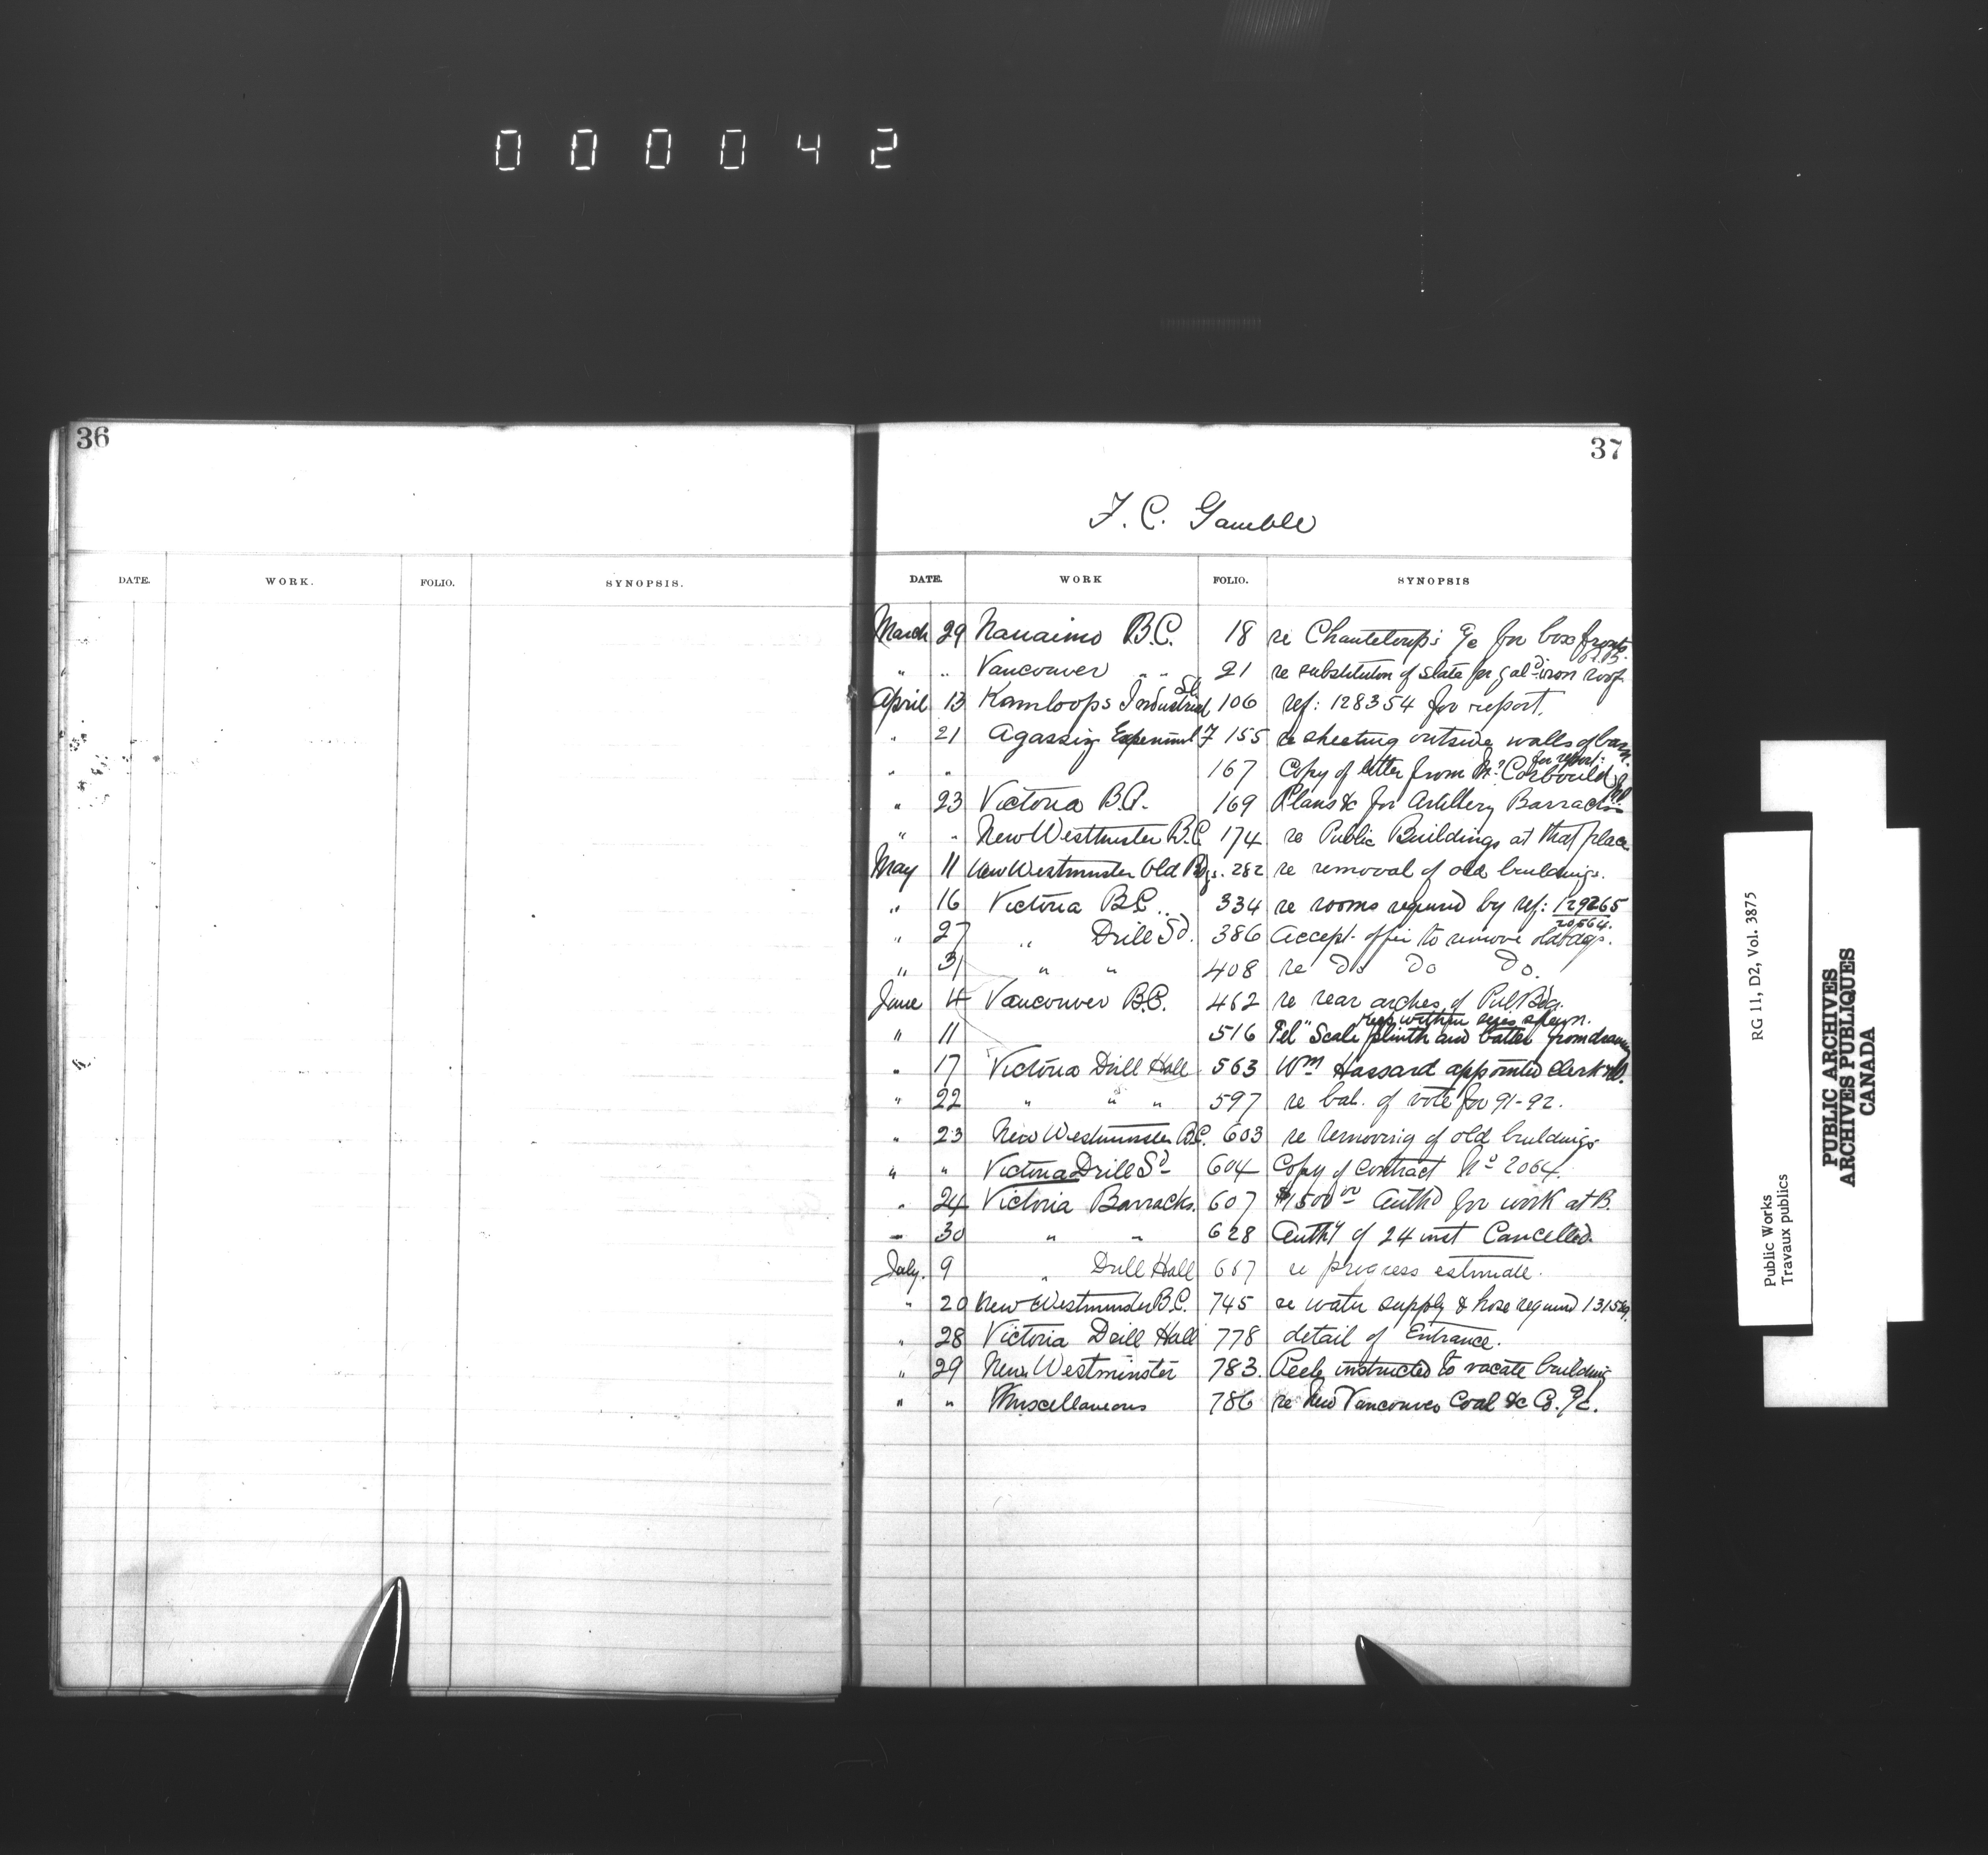 000042
36
DATE. WORK. FOLIO. SYNOPSIS.
37
F. C. Gamble
DATE. WORK FOLIO. SYNOPSIS
March 29 Nanaimo B.C. 18 re Chanteloup's for box fronts
" " Vancouver " " 21 re substitution of slate for gal'd iron roof
April 13 Kamloops Industrial Sl 106 ref: 128354 for report.
" 21 Agassiz Experiml F 155 re sheeting outside walls of barn.
" " 167 Copy of letter from Mr Corbould for report.
" 23 Victoria B.C. 169 Plans &c for Artillery Barracks
" " New Westminster B.C. 174 re Public Buildings at that place
May 11 New Westminster Old Bdgs. 282 re removal of old buildings.
" 16 Victoria B.C. 334 re rooms required by ref: 129265
20564.
" 27 " Drill Sd. 386 Accept offer to remove old bdgs.
" 31 " " 408 re Do Do Do.
June 4 Vancouver B.C. 462 re rear arches of Pub Bdg.
" 11 516 Tel" Scale plinth and batter from drawing
" 17 Victoria Drill Hall 563 Wm Hassard appointed Clerk
" 22 " " " 597 re bal. of vote for 91-92.
" 23 New Westminster B.C. 603 re removing of old buildings
" " Victoria Drill Sd 604 Copy of Contract No 2064.
" 24 Victoria Barracks. 607 $1500 00 Auth'd for work at B.
" 30 " " 628 Auth'y of 24 inst Cancelled.
July. 9 " Drill Hall 667 re progress estimate.
" 20 New Westminster B.C. 745 re water supply & hose required
" 28 Victoria Drill Hall 778 detail of Entrance.
" 29 New Westminster 783. instructed to vacate building
" " Miscellaneous 786 re New Vancouver Coal &c Co.
RG 11, D2, Vol. 3875
Public Works
Travaux publics
PUBLIC ARCHIVES
ARCHIVES PUBLIQUES
CANADA